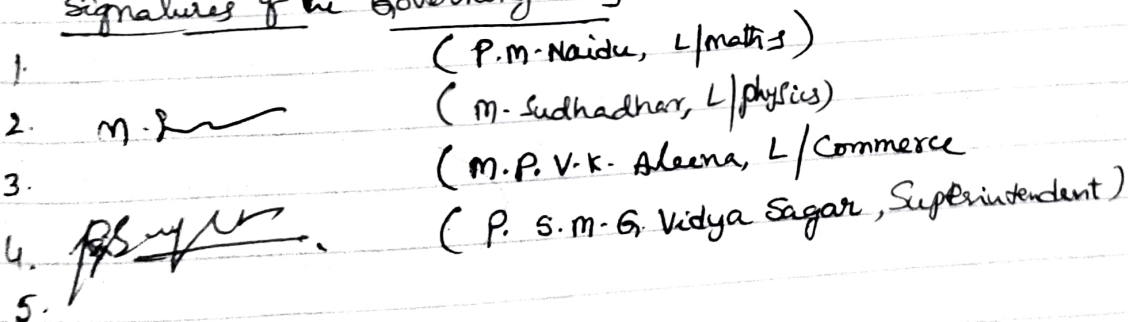 Signatures of the
1. (P.M. Naidu, L/maths)
2. M. (M. Sudhadhar, L/physics)
3. (M.P.V.K. Aleena, L/Commerce
4. (P. S.M.G. Vidya Sagar, Superintendent)
5.